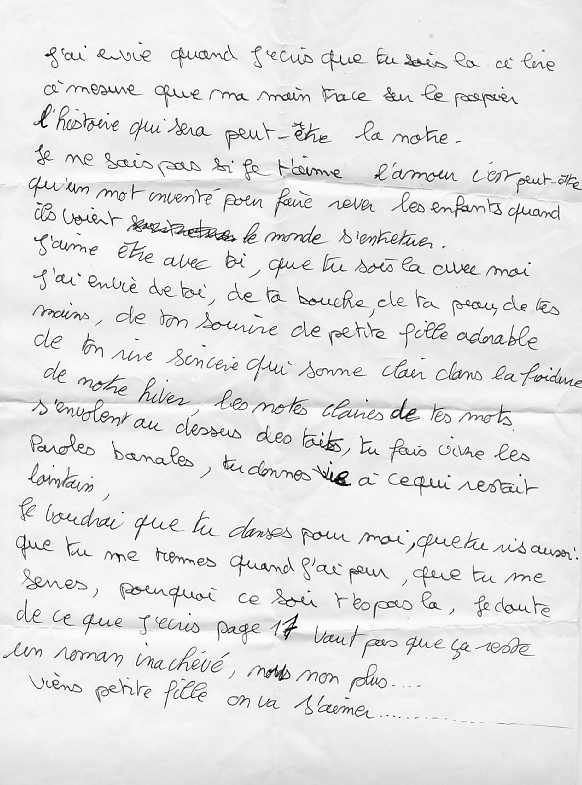 J'ai envie quand j'ecris que tu sois la a lire
a mesure que ma main trace sur le papier
l'histoire qui sera peut-être la notre.
Je ne sais pas si je t'aime l'amour c'est peut-être
qu'un mot inventé pour faire rever les enfants quand
ils voient le monde s'entretuer.
J'aime être avec toi, que tu sois la avec moi
J'ai envie de toi, de ta bouche, de ta peau, de tes
mains, de ton sourire de petite fille adorable
de ton rire sincere qui sonne clair dans la froidure
de notre hiver, les notes claires de tes mots
s'envolent au dessus des toits, tu fais vivre les
Paroles banales, tu donnes vie à ce qui restait
lointain,
Je voudrai que tu danses pour moi, que tu ris aussi!
que tu me tiennes quand j'ai peur, que tu me
serres, pourquoi ce soir t'es pas la, je doute
de ce que j'ecris page 17 vaut pas que ça reste
un roman inachévé, nous non plus....
Viens petite fille on va s'aimer..............